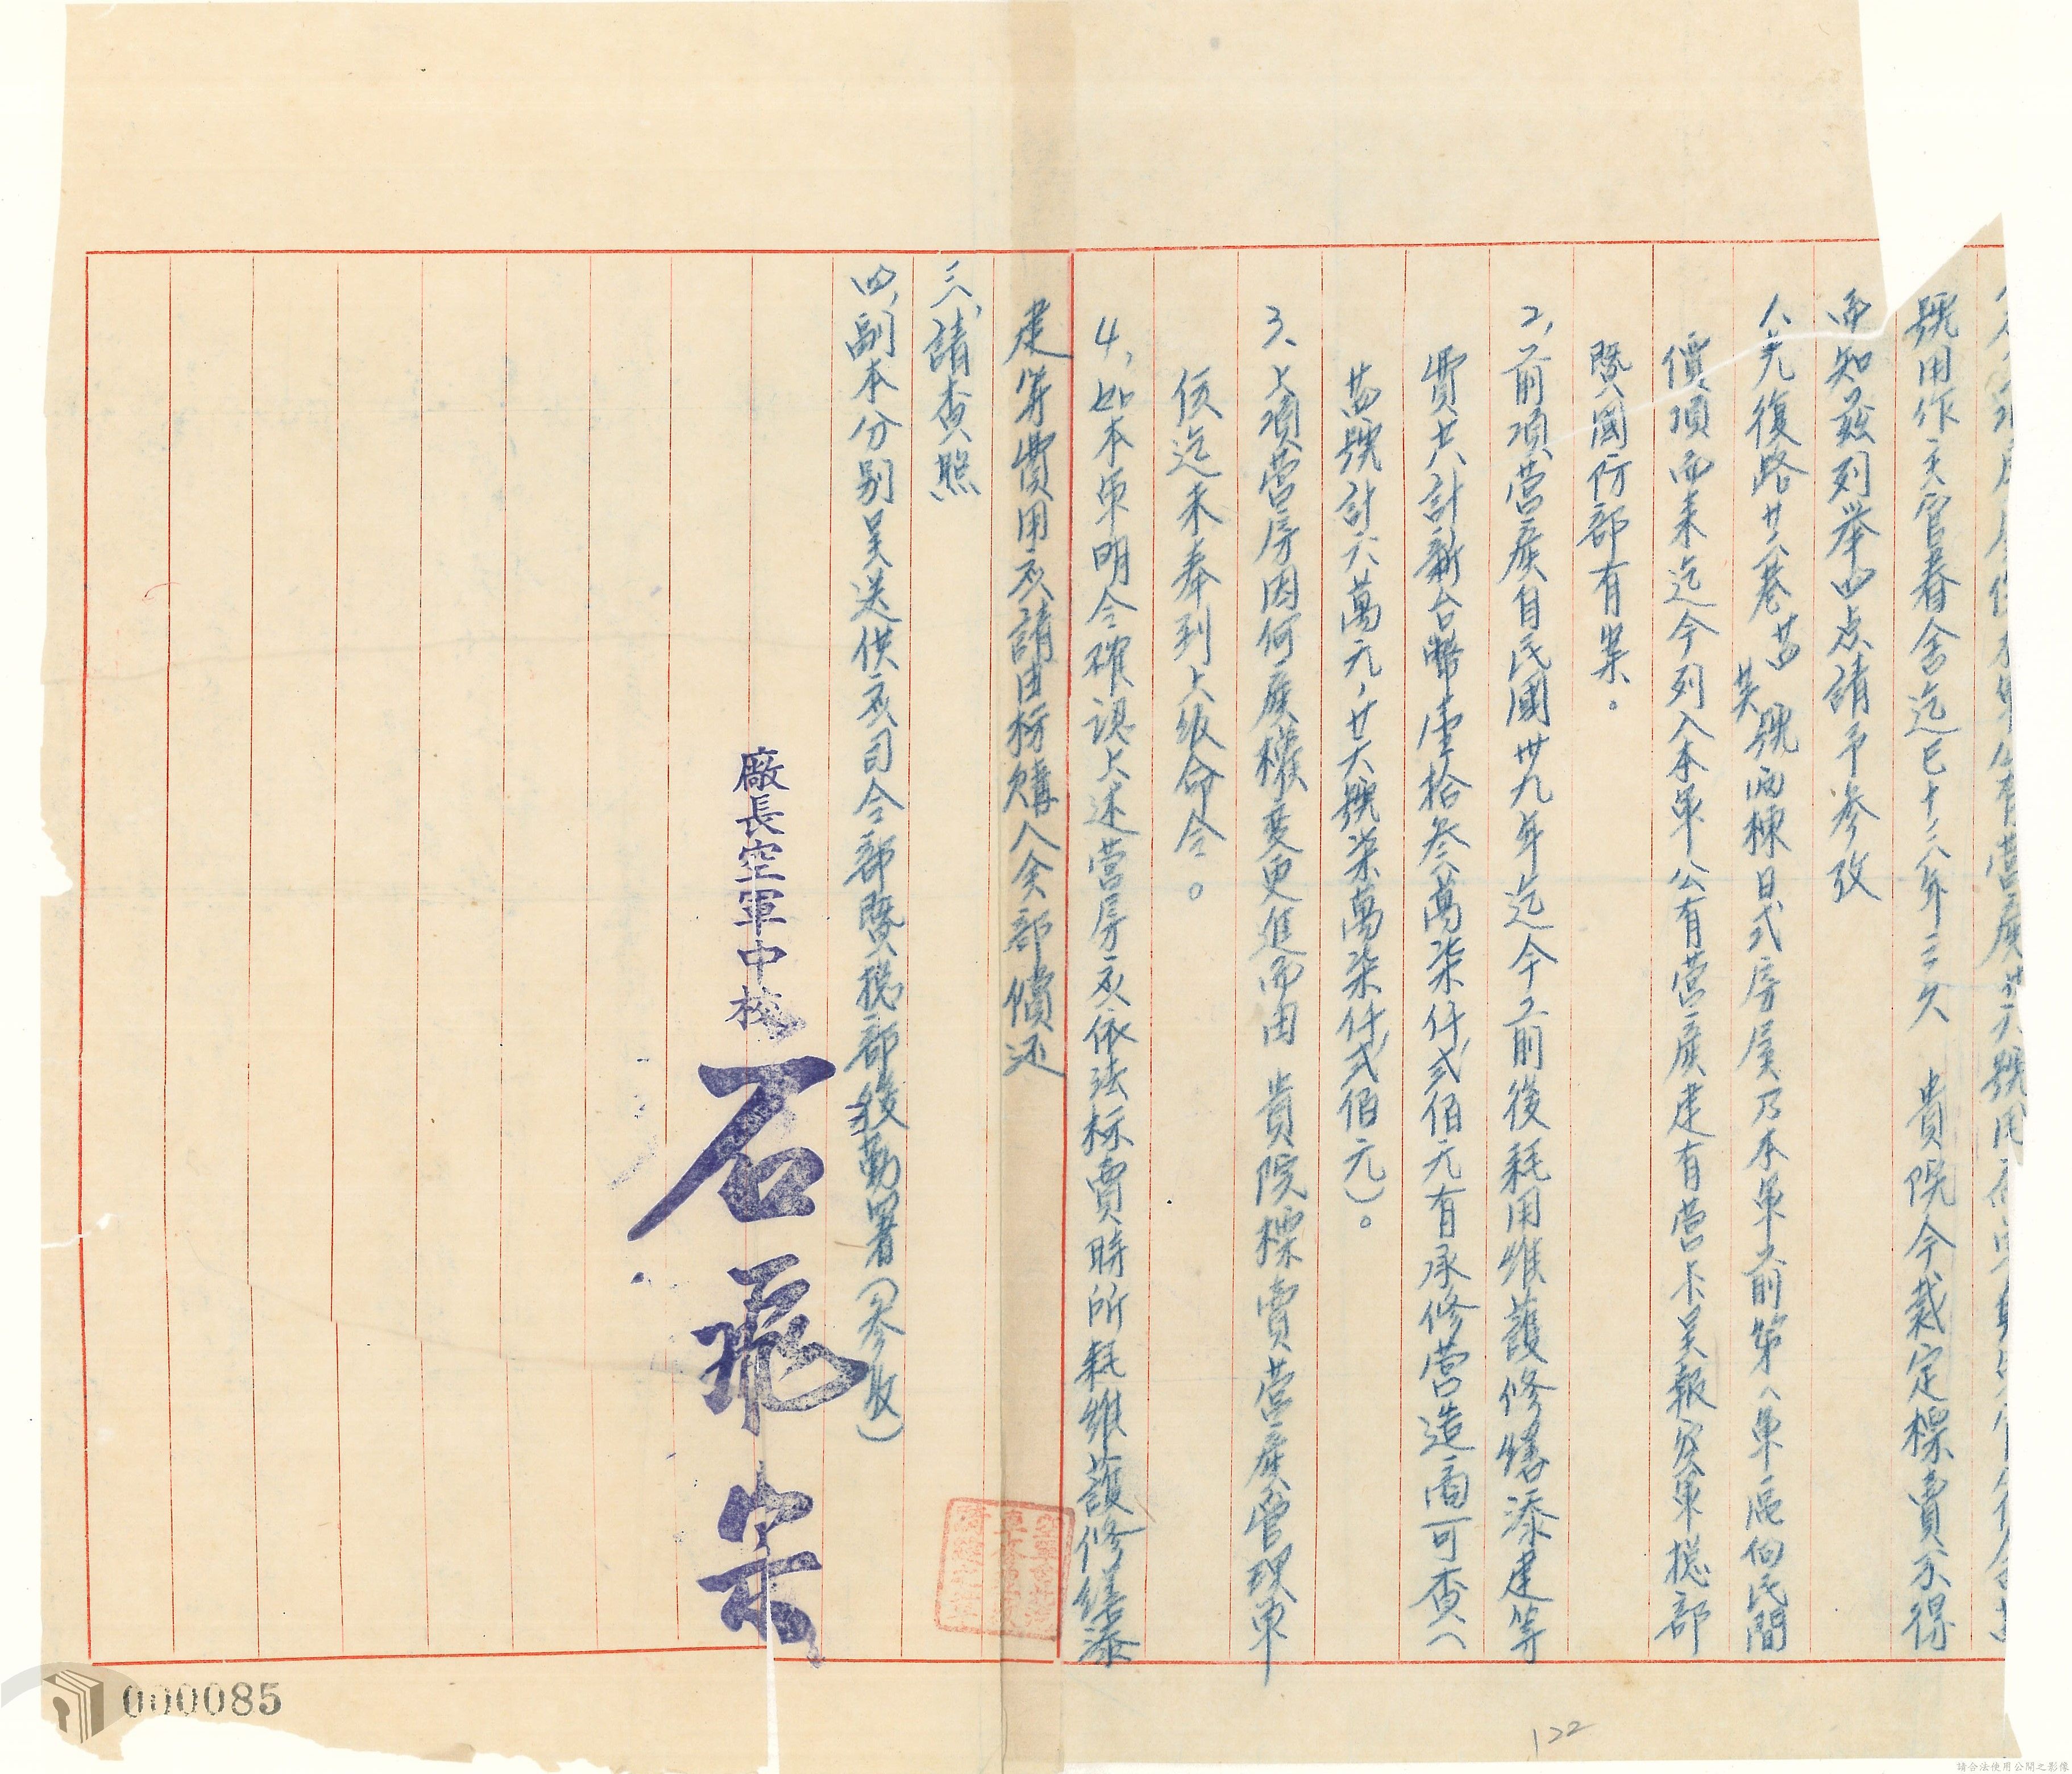 公有營產廿六號用
號用作文官眷舍迄已十六年之久　貴院今裁定標賣不得
而知茲列举四点請予參攷
1、光復路廿六巷廿四號廿六號兩棟日式房屋乃本軍前第八軍區向民間
價項而來迄今列入本軍公有營產建有營卡呈報空軍總部
暨國防部有案。
2、前項營產自民國卅九年迄今前後耗用維護修繕添建等
費共計新台幣壹拾叁萬柒仟弍佰元有承修營造商可查（
廿四號計六萬元，廿六號柒萬柒仟弍佰元）。
3、上項營房因何產權变更進而由　貴院標賣營產管理單
位迄未奉到上級命令。
4、如本軍明令確認上述營房应依法标賣時所耗維護修繕添
建等費用应請由标購人全部償还
三、請查照
四、副本分别呈送供应司令部暨总部後勤署（參攷）
廠長空軍中校 石飛宗
000085
122
請合法使用公開之影像